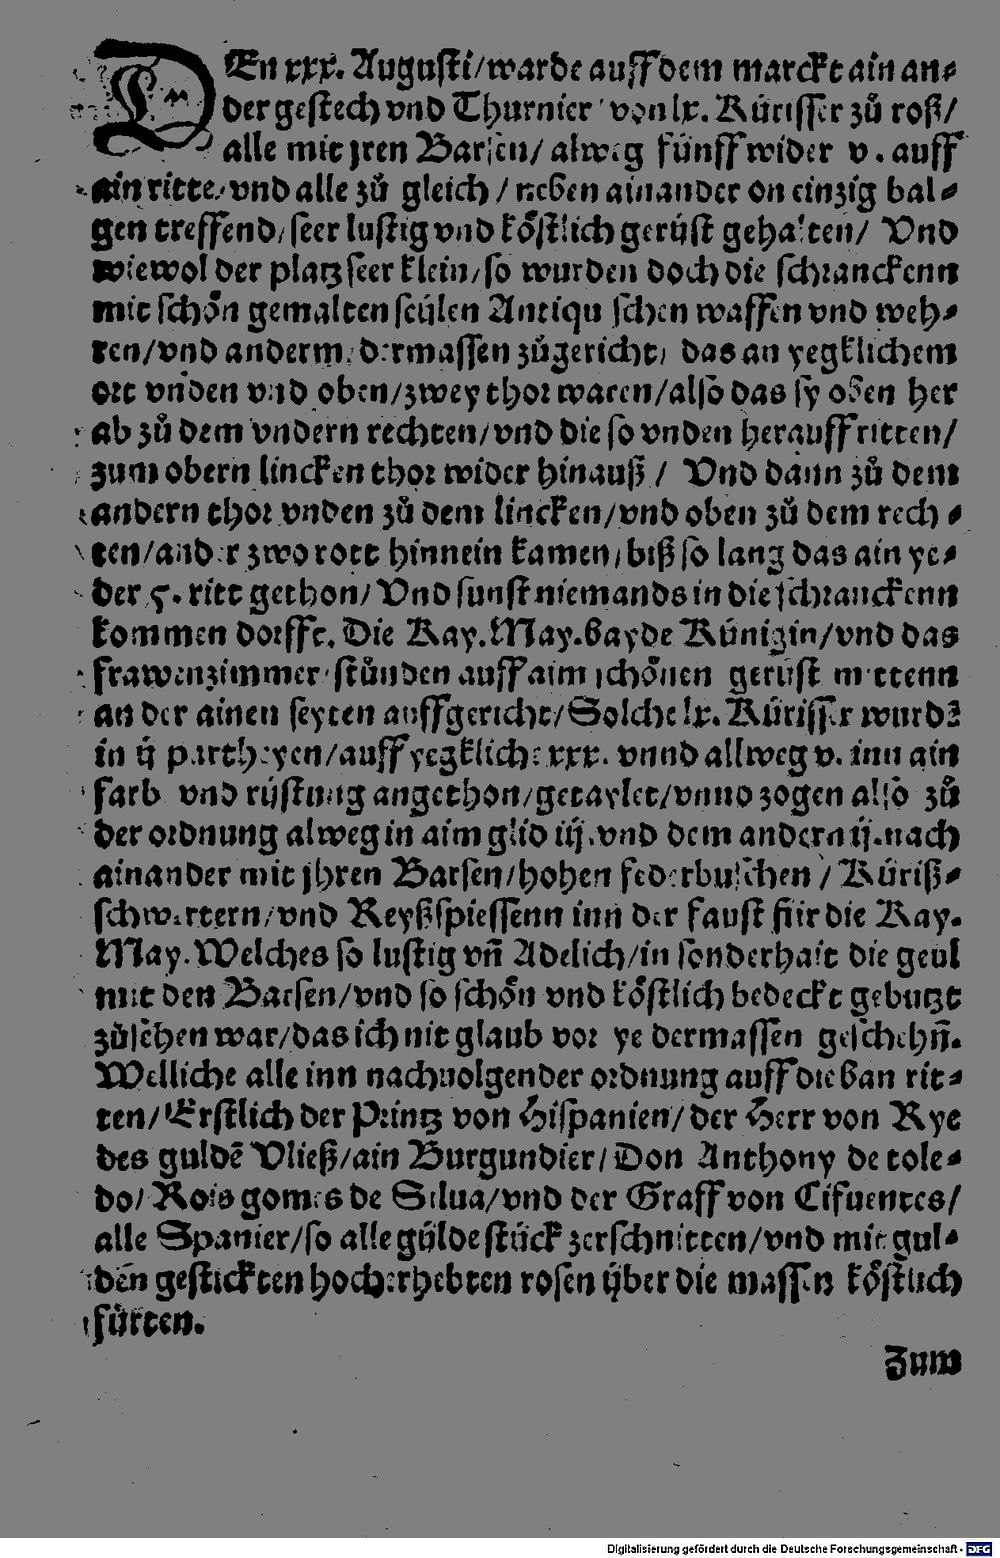 DEn xxx. Augusti/warde auff dem marckt ain an⸗
der gestech vnd Thurnier von lx. Kürisser zů roß/
alle mit jren Barsen/ alweg fünff wider v. auff
ain ritte/vnd alle zů gleich / neben ainander on einzig bal⸗
gen treffend/seer lustig vnd köstlich gerüst gehalten/ Vnd
wiewol der platz seer klein/so wurden doch die schranckenn
mit schön gemalten seülen Antiqu schen waffen vnd weh⸗
ren/vnd anderm/dermassen zůgericht/ das an yegklichem
ort vnden vnd oben/zwey thor waren/also das sy oben her
ab zů dem vndern rechten/vnd die so vnden herauff ritten/
zum obern lincken thor wider hinauß / Vnd dann zů dem
andern thor vnden zů dem lincken/vnd oben zů dem rech⸗
ten/ander zwo rott hinnein kamen/biß so lang das ain ye⸗
der 5. ritt gethon/ Vnd sunst niemands in die schranckenn
kommen dorffe. Die Kay. May. bayde Künigin/vnd das
frawenzimmer stůnden auff aim schönen gerüst mittenn
an der ainen seyten auffgericht/Solche lx. Kürisser wurdē
in ij partheyen/auff yegkliche xxx. vnnd allweg v. inn ain
farb vnd rüstung angethon/getaylet/vnnd zogen also zů
der ordnung alweg in aim glid iij. vnd dem andern ij. nach
ainander mit jhren Barsen/hohen federbuschen / Küriß⸗
schwertern/vnd Reyßspiessenn inn der faust für die Kay.
May. Welches so lustig vn̄ Adelich/in sonderhait die geul
mit den Barsen/vnd so schön vnd köstlich bedeckt gebutzt
zůsehen war/das ich nit glaub vor ye dermassen geschehn̄.
Welliche alle inn nachuolgender ordnung auff die ban rit⸗
ten/ Erstlich der Printz von Hispanien/ der Herr von Rye
des guldē Vließ/ain Burgundier/ Don Anthony de tole⸗
do/ Rois gomes de Silua/vnd der Graff von Cifuentes/
alle Spanier/so alle gülde stück zerschnitten/vnd mit gul⸗
den gestickten hocherhebten rosen über die massen köstlich
fürten.
Zum
Digitalisierung gefördert durch die Deutsche Forschungsgemeinschaft - DFG